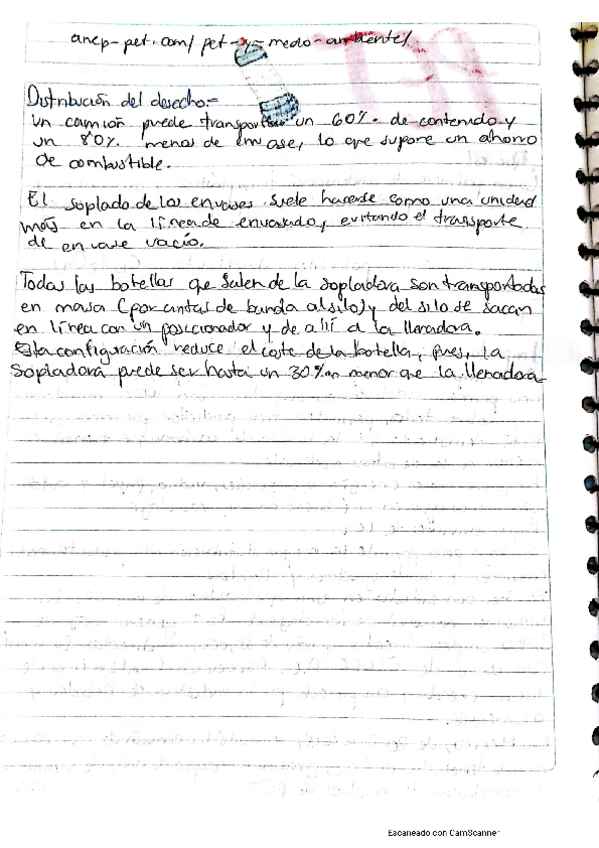 anep-pet.com/pet-y-medio-ambiente/.
Distribución del desecho:-
Un camión puede transportar un 60% de contenido y
un 80% menos de envase, lo que supone un ahorro
de combustible.
El soplado de los envases suele hacerse como una unidad
más en la línea de envasado, evitando el transporte
de envase vacío.
Todas las botellas que salen de la sopladora son transportadas
en masa (por cintas de banda al silo) y del silo se sacan
en línea con un posicionador y de allí a la llenadora.
Esta configuración reduce el coste de la botella, pues, la
sopladora puede ser hasta un 30% menor que la llenadora
Escaneado con CamScanner